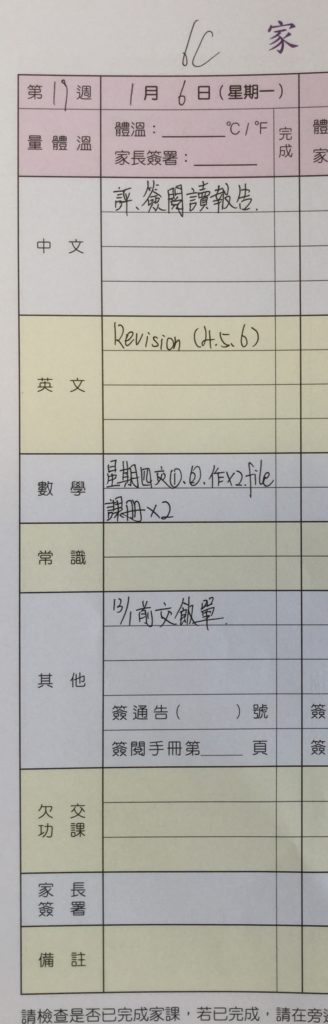 6C 家
第 19 週 1 月 6 日(星期一)
量體溫 體溫：______ °C / °F 完成 體
家長簽署：______ 家
中文 評、簽閱讀報告.
英文 Revision (4.5.6)
數學 星期四交①.⑥.作x2.file
課冊x2
常識
其他 13/1前交飯單.
簽通告( )號 簽
簽閱手冊第____頁 簽
欠交功課
家長簽署
備註
請檢查是否已完成家課，若已完成，請在旁